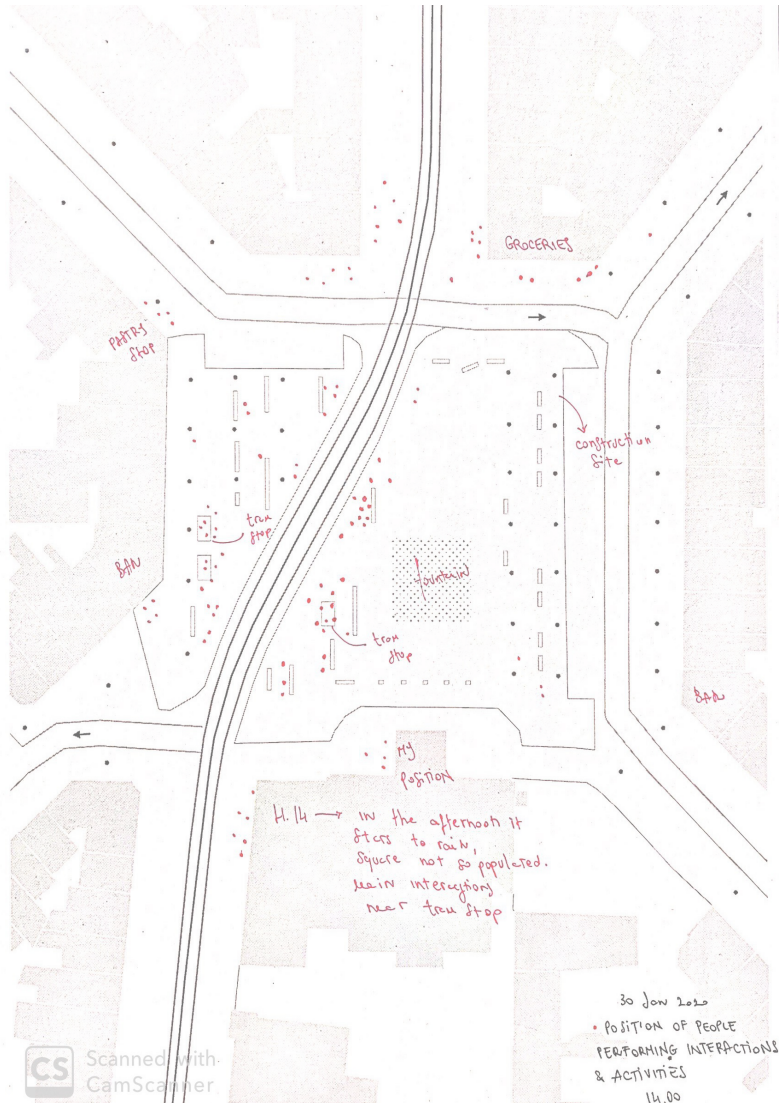 GROCERIES
PASTRY
STOP
construction
Site
tram
stop
BAR
fountain
tram
stop
BAR
MY
POSITION
H.14 → in the afternoon it
stars to rain,
Square not so populated.
main interactions
near tram stop
30 Jan 2020
• POSITION OF PEOPLE
PERFORMING INTERACTIONS
& ACTIVITIES
14.00
CS Scanned with
CamScanner